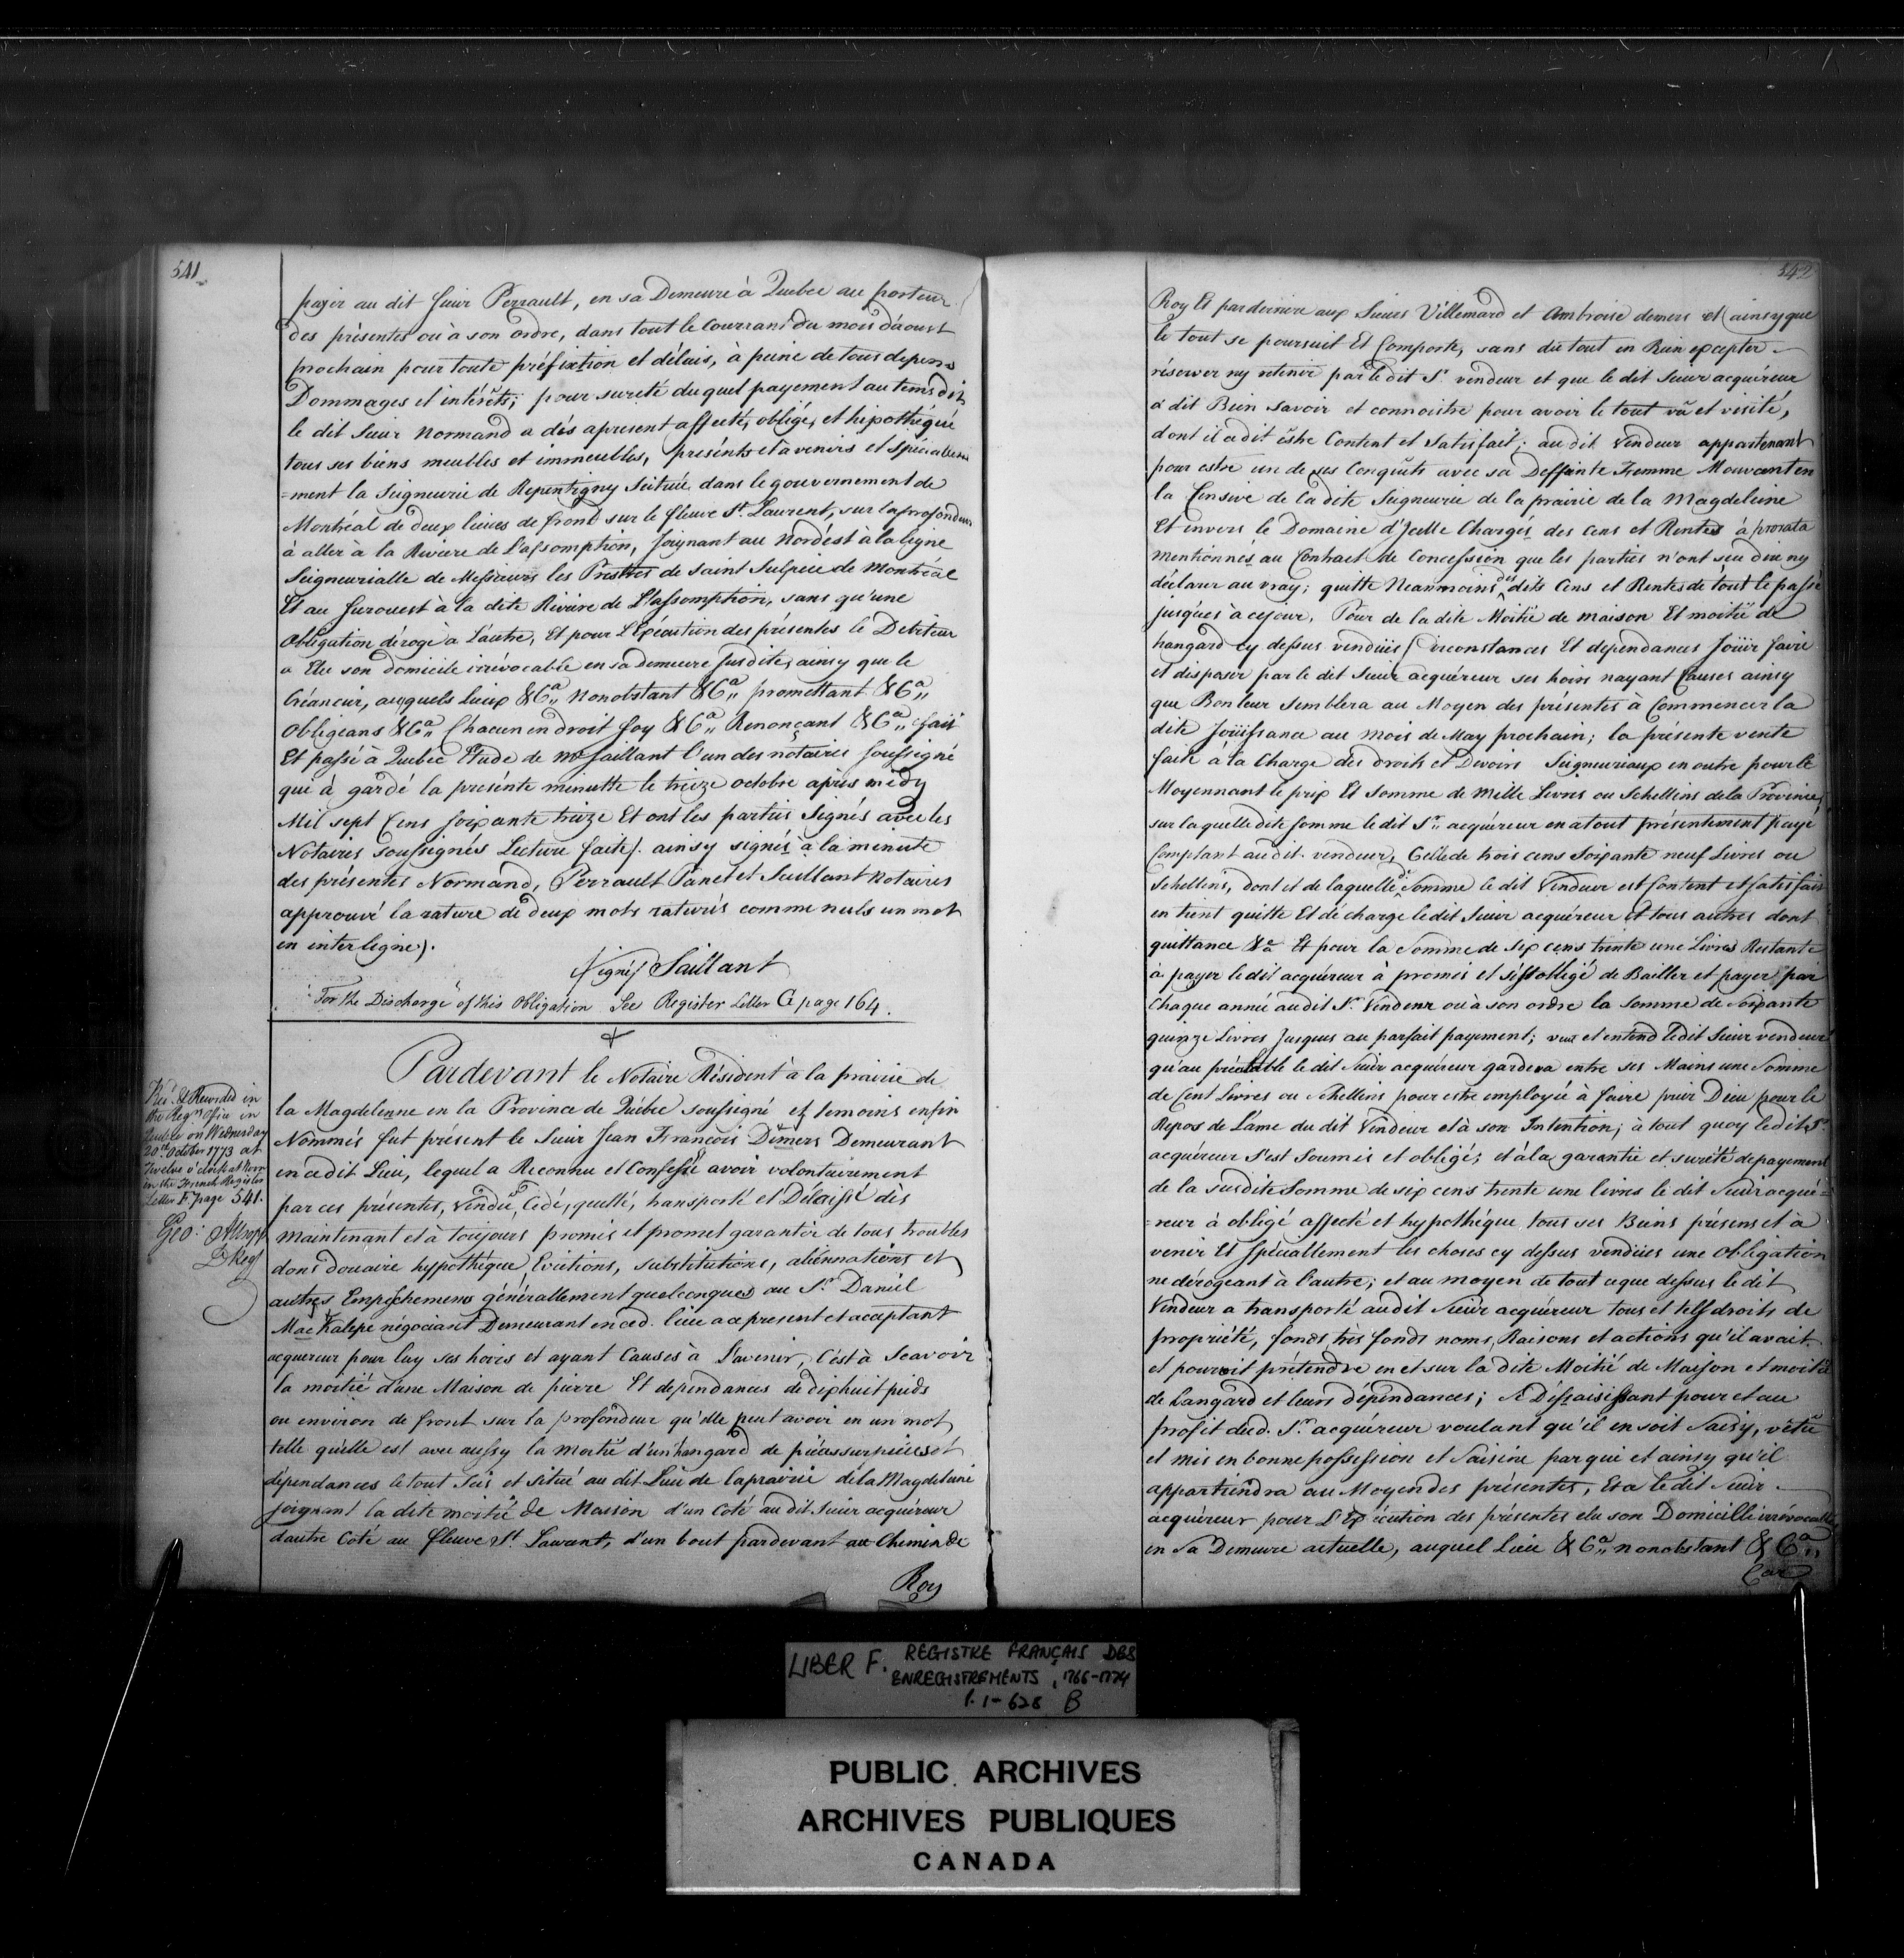 541
payer au dit Sieur Perrault, en sa Demeure à Quebec au porteur
des présentes ou à son ordre, dans tout le Courrant du mois d'aoust
prochain pour toute préfixtion et délais, à peine de tous depens
Dommages et intérêts; pour sureté du quel payement au tems dit
le dit Sieur Normand a dés apresent affecté, obligé, et hipothéqué
tous ses biens meubles et immeubles, présents et à venirs et spécialle
=ment la Seigneurie de Repentigny Scituée dans le gouvernement de
Montréal de deux lieues de front sur le fleuve St. Laurent, sur la profondeur
à aller à la Riviere de L'assomption, joignant au Nordést à la ligne
Seigneurialle de Messieurs les Prestres de Saint Sulpice de Montréal
Et au Surouest à la dite Riviere de L'assomption, sans qu'une
Obligation déroge à L'autre, Et pour L'Exécution des présentes le Debiteur
a Elu son domicile irrévocable en sa demeure susdite, ainsy que le
Créancier, auxquels Lieux &Ca,, nonobstant &Ca,, promettant &Ca,,
Obligeans &Ca,, Chacun en droit soy &Ca,, Renonçant &Ca,, fait
Et passé à Quebec Etude de Me Saillant l'un des notaires soussigné
qui à gardé la présente minutte le treize octobre après midy
Mil sept Cens soixante treize Et ont les parties Signés avec les
Notaires soussignés Lecture faite/. ainsy signés à la minute
des présentes Normand, Perrault Panet et Saillant Notaires
approuvé la rature de deux mots raturés comme nuls un mot
en interligne).
/Signé/ Saillant
"For the Discharge" of this Obligation See Register Letter G page 164.
Pardevant le Notaire Résident à la prairie de
la Magdelenne en la Province de Québec soussigné et temoins enfin
Nommés fut présent le Sieur Jean François Dêmers Demeurant
en cedit Lieu, lequel a Reconnu et Confessé avoir volontairement
par ces présentes, Vendu, Cédé, quitté, transporté et Délaissé dès
maintenant et à toujours promis et promet garantir de tous troubles
dons douaire hyppothèque Evictions, substitutions, aliénnations et
autres Empêchemens générallement quelconques au Sr. Daniel
Mac Kalepe négociant Demeurant en ced. lieu a ce present et acceptant
acquereur pour luy ses hoirs et ayant Causes à L'avenir, C'est à Scavoir
la moitié d'une Maison de pierre Et dependances de dixhuit pieds
ou environ de front sur la profondeur qu'elle peut avoir en un mot
telle qu'elle est avec aussy la moitié d'un hangard de pièces sur pieces et
dépendances le tout sis et situé au dit Lieu de Laprairie de la Magdeleine
joignant la dite moitié de Maison d'un Coté au dit Sieur acquéreur
dautre Coté au fleuve St. Laurent, d'un bout pardevant au Chemin de
Roy
Rec. & Recorded in
the Regrs. Office in
Quebec on Wednesday
20th. October 1773 at
Twelve o'Clock at Noon
in the French Register
Letter F page 541.
Geo: Allsopp
D Reg
542
Roy Et par derriere aux Sieurs Villemard et Ambroise demers et ainsy que
le tout se poursuit Et Comporte, sans du tout en Rien excepter
réserver ny retenir par le dit Sr. vendeur et que le dit Sieur acquéreur
a dit Bien savoir et connoistre pour avoir le tout vû et visité,
dont il a dit être Content et Satisfait; au dit Vendeur appartenant
pour estre un de ses Conquêts avec sa Deffunte Femme Mouvant en
la Censive de la dite Seigneurie de la prairie de la Magdeleine
Et envers le Domaine d'Icelle Chargés des Cens et Rentes à prorata
mentionnés au Contract de Concession que les parties n'ont seu dire ny
déclarer au vray; quitte Neanmoins des dits Cens et Rentes de tout le passé
jusques à ce jour, Pour de la dite Moitié de maison Et moitié de
hangard cy dessus vendües Circonstances Et dependances Joüir faire
et disposer par le dit Sieur acquéreur ses hoirs nayant Causes ainsy
que Bon leur Semblera au Moyen des présentes à Commencer la
dite Joüissance au mois de May prochain; la présente vente
faite à la Charge des droits et Devoirs Seigneuriaux en outre pour le
Moyennant le prix Et Somme de Mille Livres ou Schellins de la Province,
sur laquelle dite somme le dit Sr.. acquéreur en a tout présentement payé
Comptant au dit vendeur, Celle de trois cens Soixante neuf Livres ou
Schellins, dont et de laquelle Somme le dit Vendeur est Content et satisfait
en tient quitte Et décharge le dit Sieur acquéreur et tous autres dont
quittance &a Et pour la Somme de Six cens trente une Livres Restante
à payer le dit acquéreur à promis et s'est obligé de Bailler et payer par
Chaque année au dit Sr. Vendeur ou à son ordre la Somme de Soixante
quinze Livres Jusques au parfait payement; veut et entend le dit Sieur vendeur
qu'au préalable le dit Sieur acquéreur gardera entre ses Mains une Somme
de Cent Livres ou Schellins pour estre employée à faire prier Dieu pour le
Repos de L'ame du dit Vendeur et à son Intention; à tout quoy le dit Sr.
acquéreur s'est soumis et obligé; et à la garantie et sureté de payement
de la susdite Somme de six cens trente une livres le dit Sieur acqué=
=reur à obligé affecté et hypothéque tous ses Biens présens et à
venir Et spéciallement les choses cy dessus vendües une obligation
ne dérogeant à l'autre; et au moyen de tout ce que dessus le dit
Vendeur a transporté au dit Sieur acquéreur tous et tels droits de
propriété, fonds, très fonds noms, Raisons et actions qu'il avait
et pouvoit prétendre en et sur la dite Moitié de Maison et moitié
de hangard et leurs dépendances; se Déssaisissant pour et au
profit dud. Sr. acquéreur voulant qu'il en soit Saisy, vêtu
et mis en bonne possession et Saisine par qui et ainsy qu'il
appartiendra au Moyen des présentes, Et a le dit Sieur
acquéreur pour L'Exécution des présentes elu son Domicille irrévocable
en sa Demeure actuelle, auquel Lieu &Ca,, nonobstant &Ca,,
Car
LIBER F. REGISTRE FRANÇAIS DES
ENREGISTREMENTS, 1766-1774
P. 1-628 B
PUBLIC ARCHIVES
ARCHIVES PUBLIQUES
CANADA